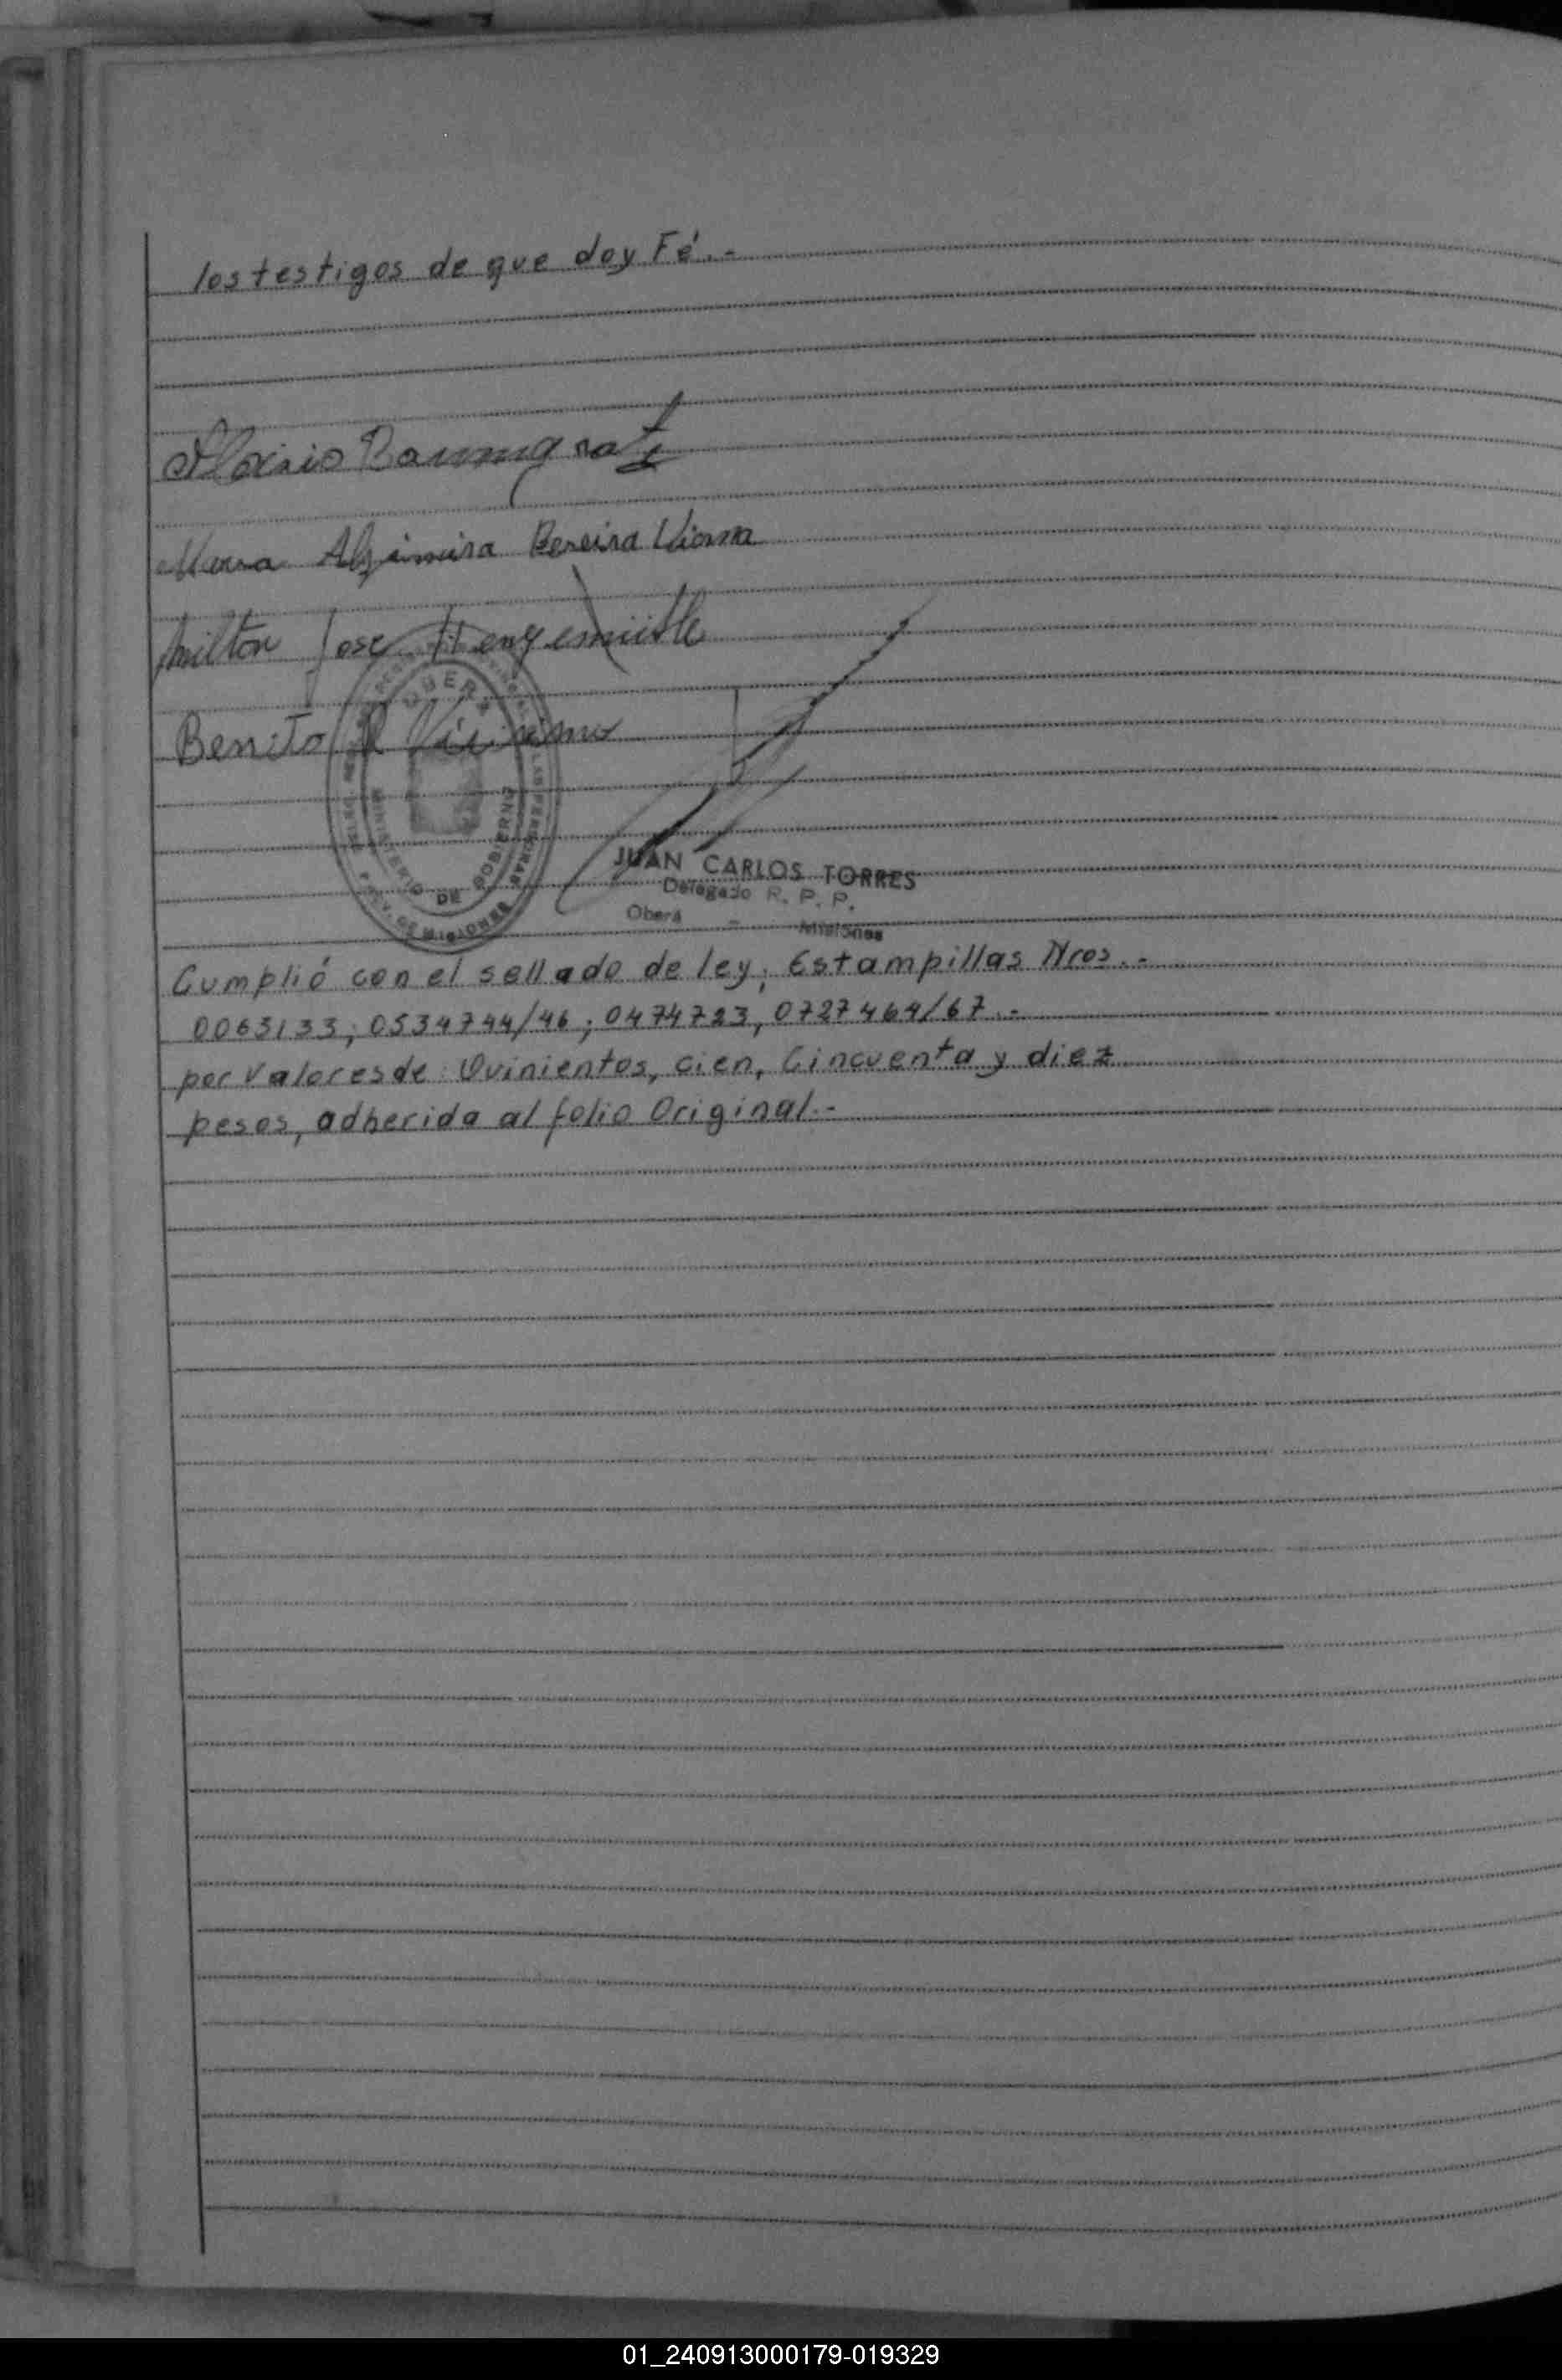 los testigos de que doy Fé.-
Baumgratz
Maria Alzimira Pereira Viana
Milton Jose
Benito
MINISTERIO DE GOBIERNO
PROV. DE MISIONES
JUAN CARLOS TORRES
Delegado R. P. P.
Oberá - Misiones
Cumplió con el sellado de ley; Estampillas Nros..-
0063133; 0534744/46; 0474723, 0727464/67.-
por Valores de: Quinientos, cien, Cincuenta y diez
pesos, adherida al folio Original.-
01_240913000179-019329